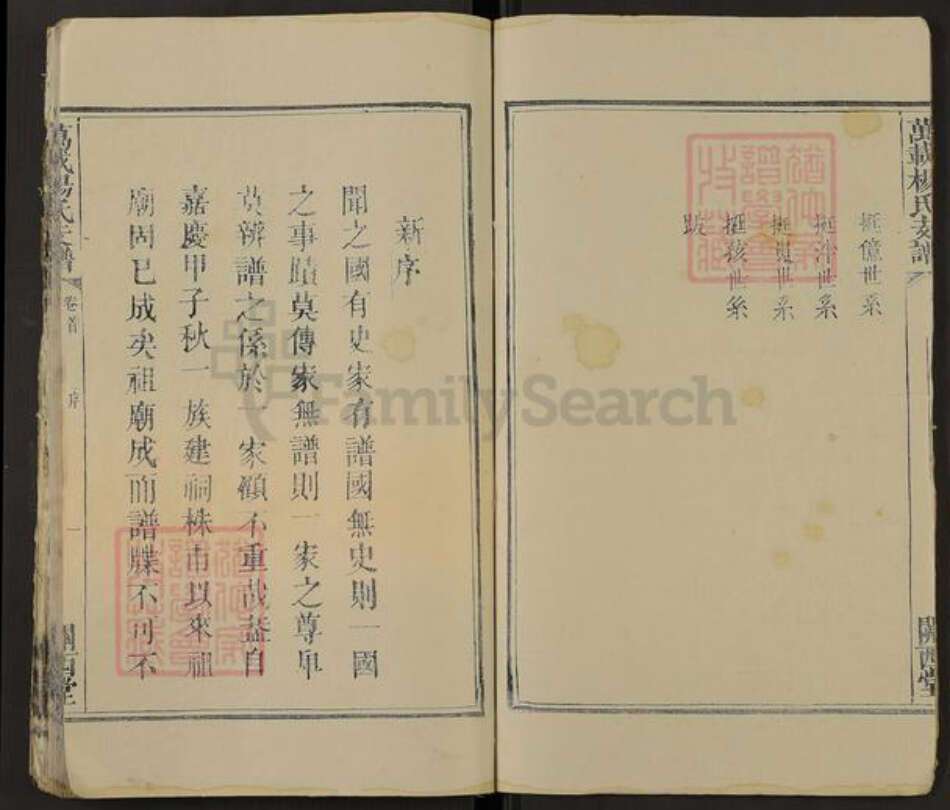 萬載楊氏支譜
關西堂
挺億世系
挺沖世系
挺世系
挺核世系
跋
新序
聞之國有史家有譜國無史則一國
之事蹟莫傳家無譜則一家之尊卑
莫辨譜之係於一家顧不重哉蓋自
嘉慶甲子秋一族建祠株市以來祖
廟固已成矣祖廟成而譜牒不可不
萬載楊氏支譜
卷首
序
一
關西堂
FamilySearch